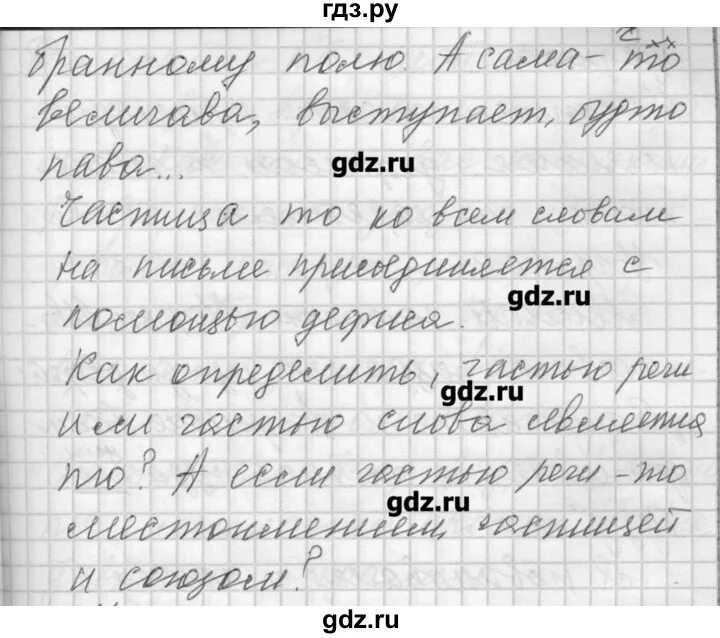 гдз.ру
бранному полю. А сама-то
с
величава, выступает, будто
пава...
gdz.ru
Частица то ко всем словам
на письме присоединяется с
gdz.ru
помощью дефиса.
Как определить, частью речи
gdz.ru
или частью слова является
то? А если частью речи -то
gdz.ru
местоимением, частицей
и союзом?
gdz.ru